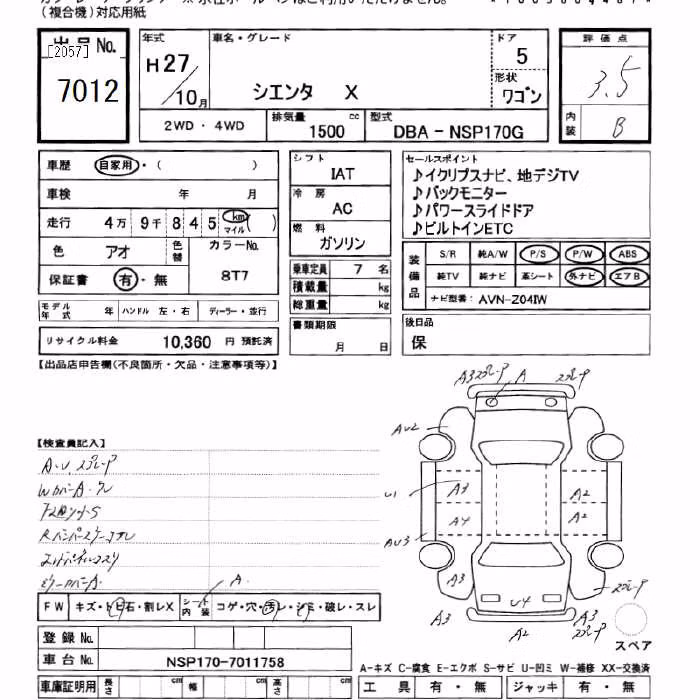 （複合機）対応用紙
出品No.
[2057]
7012
年式
H27
/10月
車名・グレード
シエンタ X
ドア
5
形状
ワゴン
評価点
3.5
内装
B
2WD ・ 4WD
排気量
1500 cc
型式
DBA - NSP170G
車歴 自家用・( )
車検 年 月
走行 4万 9千 8 4 5 km マイル ( )
色 アオ 色替 カラーNo. 8T7
保証書 有・無
モデル年式 年 ハンドル 左・右 ディーラー・並行
リサイクル料金 10,360 円 預託済
シフト
IAT
冷房
AC
燃料
ガソリン
乗車定員 7 名
積載量 kg
総重量 kg
書類期限
月 日
セールスポイント
♪イクリプスナビ、地デジTV
♪バックモニター
♪パワースライドドア
♪ビルトインETC
装備品
S/R 純A/W P/S P/W ABS
純TV 純ナビ 革シート 外ナビ エアB
ナビ型番： AVN-Z04IW
後日品
保
【出品店申告欄(不良箇所・欠品・注意事項等)】
【検査員記入】
A・U、スプレーP
WカバーA・ワレ
FガラソトS
Rバンパースリーコスレ
ミラーカバーA
A
FW キズ・トビ石・割レX シート内装 コゲ・穴・汚レ・シミ・破レ・スレ
A3 スプレーP A スプレーP
AU2
U1 A3 A2
AU3 A4 A2
A3 スプレーP
A3 U4 A3
A2 スプレーP
スペア
登録No.
車台No. NSP170-7011758
車庫証明用 長さ cm 幅 cm 高さ cm
A-キズ C-腐食 E-エクボ S-サビ U-凹ミ W-補修 XX-交換済
工具 有・無 ジャッキ 有・無